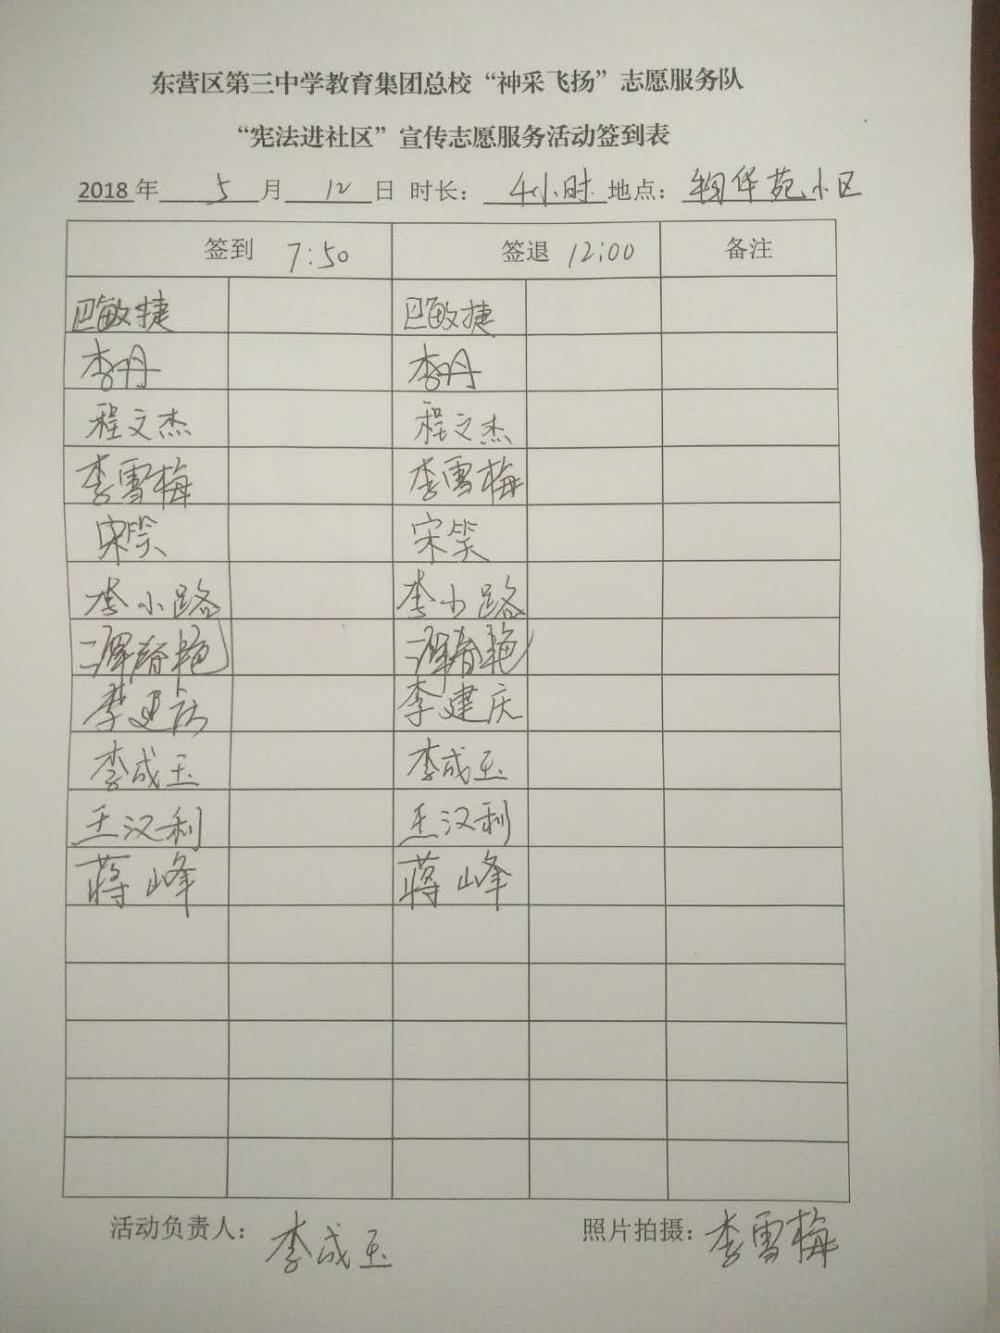 东营区第三中学教育集团总校“神采飞扬”志愿服务队
“宪法进社区”宣传志愿服务活动签到表
2018年 5 月 12 日 时长： 4小时 地点： 翔华苑小区
签到 7:50 签退 12:00 备注
巴敏捷 巴敏捷
李丹 李丹
程文杰 程文杰
李雪梅 李雪梅
宋笑 宋笑
李小路 李小路
春艳 春艳
李建庆 李建庆
李成玉 李成玉
王汉利 王汉利
蒋峰 蒋峰
活动负责人： 李成玉 照片拍摄： 李雪梅